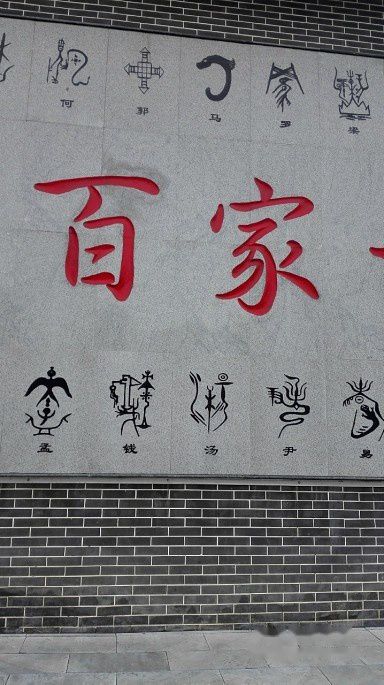 何 郭 马 罗 梁
百家
孟 钱 汤 尹 易